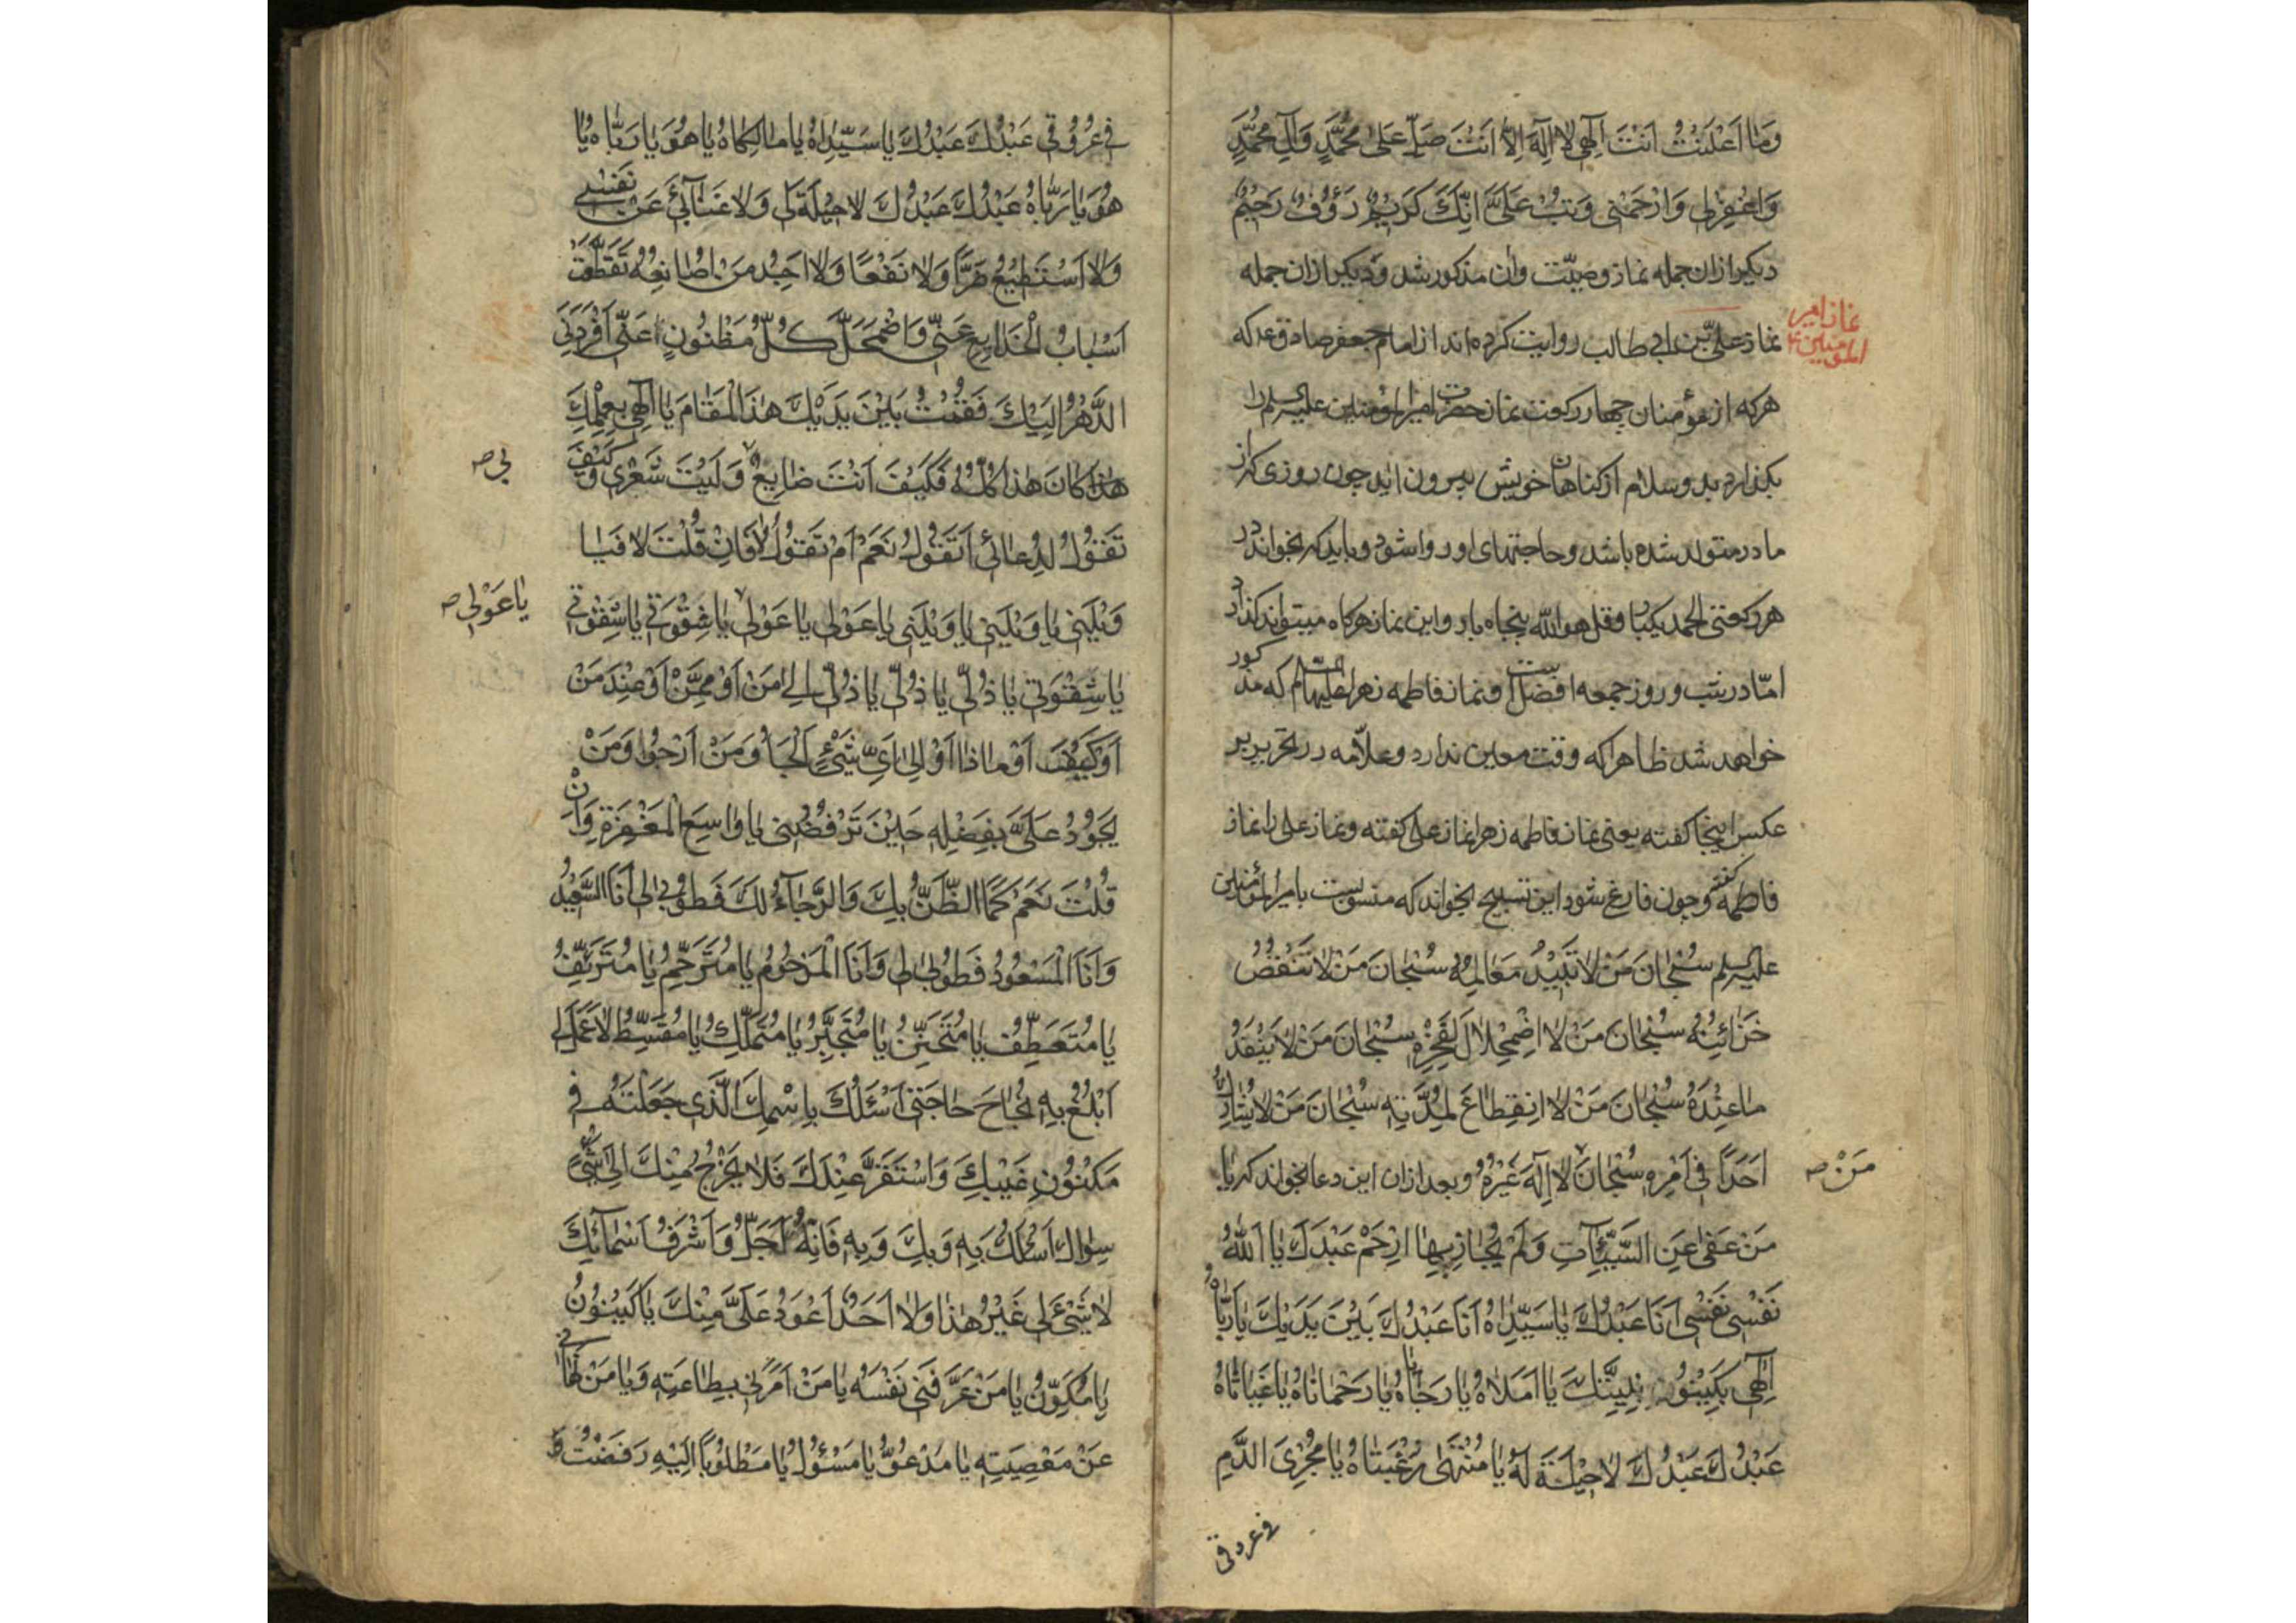 وَمٰا اَعْلَنْتُ اَنْتَ اِلٰهِی لٰا اِلٰهَ اِلّٰا اَنْتَ صَلِّ عَلیٰ مُحَمَّدٍ وَآلِ مُحَمَّدٍ
وَاغْفِرْلِی وَارْحَمْنِی وَتُبْ عَلَیَّ اِنَّكَ كَرِيْمٌ رَؤُفٌ رَحِیْمٌ
دیکر ازان جمله نماز وصیّت وان مذکور شد و دیکر ازان جمله
نماز امیر المؤمنین ع
نماز علیّ بن ابی طالب روایت کرده اند از امام جعفر صادق ع که
هرکه از مؤمنان چهار رکعت نماز حضرت امیرالمؤمنین علیه السلم را
بکذارد بدو سلام از کناهان خویش بیرون اید چون روزی که از
مادر متولد شده باشد و حاجتهای او روا شود و باید که بخواند در
هر رکعتی الحمد یکبار و قل هو الله پنجاه بار و این نماز هرکاه میتواند کذارد
امّا در شب و روز جمعه افضل است و نماز فاطمه زهرا علیها السلم که مذکور
خواهد شد ظاهرا که وقت معین ندارد و علاّمه در تحریر بر
عکس اینجا کفته یعنی نماز فاطمه زهرا نماز علی کفته و نماز علی را نماز
فاطمه کفته و چون فارغ شود این تسبیح بخواند که منسوبست بامیرالمؤمنین
علیه السلم سُبْحٰانَ مَنْ لٰا تَبِیْدُ مَعٰالِمُهُ سُبْحٰانَ مَنْ لٰا تَنْقُصُ
خَزٰائِنُهُ سُبْحٰانَ مَنْ لٰا اضْمِحْلٰالَ لِفَخْرِهِ سُبْحٰانَ مَنْ لٰا یَنْفَدُ
مٰا عِنْدَهُ سُبْحٰانَ مَنْ لٰا انْقِطٰاعَ لِمُدَّتِهِ سُبْحٰانَ مَنْ لٰا یُشٰارِكُ
اَحَدًا فِی اَمْرِهِ سُبْحٰانَ لٰا اِلٰهَ غَیْرُهُ و بعد ازان این دعا بخواند که یٰا
مَنْ صه
مَنْ عَفیٰ عَنِ السَّیِّئٰاتِ وَلَمْ یُجٰازِ بِهٰا اِرْحَمْ عَبْدَكَ یٰا اَللهُ
نَفْسِی نَفْسِی اَنَا عَبْدُكَ یٰا سَیِّدٰاهُ اَنَا عَبْدُكَ بَیْنَ یَدَیْكَ یٰا رَبّٰاهُ
اِلٰهِی بِكَیْنُونَتِكَ یٰا اَمَلٰاهُ یٰا رَجٰایٰاهُ یٰا رَحْمٰانٰاهُ یٰا غِیٰاثٰاهُ
عَبْدُكَ عَبْدُكَ لٰا حِیْلَةَ لَهُ یٰا مُنْتَهیٰ رَغْبَتٰاهُ یٰا مُجْرِیَ الدَّمِ
فی عروقی
فِی عُرُوْقِی عَبْدُكَ عَبْدُكَ یٰا سَیِّدٰاهُ یٰا مٰالِكٰاهُ یٰا هُوَ یٰا رَبّٰاهُ یٰا
هُوَ یٰا رَبّٰاهُ عَبْدُكَ عَبْدُكَ لٰا حِیْلَةَ لِی وَلٰا غِنٰا بِی عَنْ نَفْسِی
وَلٰا اَسْتَطِیْعُ ضَرًّا وَلٰا نَفْعًا وَلٰا اَجِدُ مَنْ اُصٰانِعُهُ تَقَطَّعَتْ
اَسْبٰابُ الْخَدٰایِعِ عَنِّی وَاضْمَحَلَّ كُلُّ مَظْنُونٍ عَنِّی اَفْرَدَنِی
الدَّهْرُ اِلَیْكَ فَقُمْتُ بَیْنَ یَدَیْكَ هٰذَا الْمَقٰامَ یٰا اِلٰهِی بِعِلْمِكَ
هٰذٰا كٰانَ هٰذٰا كُلُّهُ فَكَیْفَ اَنْتَ صٰانِعٌ وَلَیْتَ شَعْرِی وَكَیْفَ
بی صه
تَقُولُ لِدُعٰائِی اَتَقُولُ نَعَمْ اَمْ تَقُولُ لٰا فَاِنْ قُلْتَ لٰا فَیٰا
وَیْلَتِی یٰا وَیْلَتِی یٰا وَیْلَتِی یٰا عَوْلِی یٰا عَوْلِی یٰا شِقْوَتِی یٰا شِقْوَتِی
یٰا عَوْلِی صه
یٰا شِقْوَتِی یٰا ذُلِّی یٰا ذُلِّی یٰا ذُلِّی اِلیٰ مَنْ اَوْ مِمَّنْ اَوْ عِنْدَ مَنْ
اَوْ كَیْفَ اَوْ مٰاذٰا اَوْ اِلیٰ اَیِّ شَیْءٍ اَلْجَأُ وَمَنْ اَرْجُوا وَمَنْ
یَجُودُ عَلَیَّ بِفَضْلِهِ حِیْنَ تَرْفُضُنِی یٰا وٰاسِعَ الْمَغْفِرَةِ وَاِنْ
قُلْتَ نَعَمْ كَمَا الظَّنُّ بِكَ وَالرَّجٰآءُ لَكَ فَطُوْبیٰ لِی اَنَا السَّعِیْدُ
وَاَنَا الْمَسْعُودُ فَطُوْبیٰ لِی وَاَنَا الْمَرْحُومُ یٰا مُتَرَحِّمُ یٰا مُتَرَئِّفُ
یٰا مُتَعَطِّفُ یٰا مُتَحَنِّنُ یٰا مُتَجَبِّرُ یٰا مُتَمَلِّكُ یٰا مُقْسِطُ لٰا عَمَلَ لِی
اَبْلُغُ بِهِ نَجٰاحَ حٰاجَتِی اَسْئَلُكَ بِاسْمِكَ الَّذِی جَعَلْتَهُ فِی
مَكْنُونِ غَیْبِكَ وَاسْتَقَرَّ عِنْدَكَ فَلٰا یَخْرُجُ مِنْكَ اِلیٰ شَیْءٍ
سِوٰاكَ اَسْئَلُكَ بِهِ وَبِكَ وَبِهِ فَاِنَّهُ اَجَلُّ وَاَشْرَفُ اَسْمٰآئِكَ
لٰا شَیْءَ لِی غَیْرُ هٰذٰا وَلٰا اَحَدٌ اَعْوَدُ عَلَیَّ مِنْكَ یٰا كَیْنُونُ
یٰا مُكَوِّنُ یٰا مَنْ عَرَّفَنِی نَفْسَهُ یٰا مَنْ اَمَرَنِی بِطٰاعَتِهِ وَیٰا مَنْ نَهٰانِی
عَنْ مَعْصِیَتِهِ یٰا مَدْعُوُّ یٰا مَسْؤُلُ یٰا مَطْلُوْبًا اِلَیْهِ رَفَضْتُ